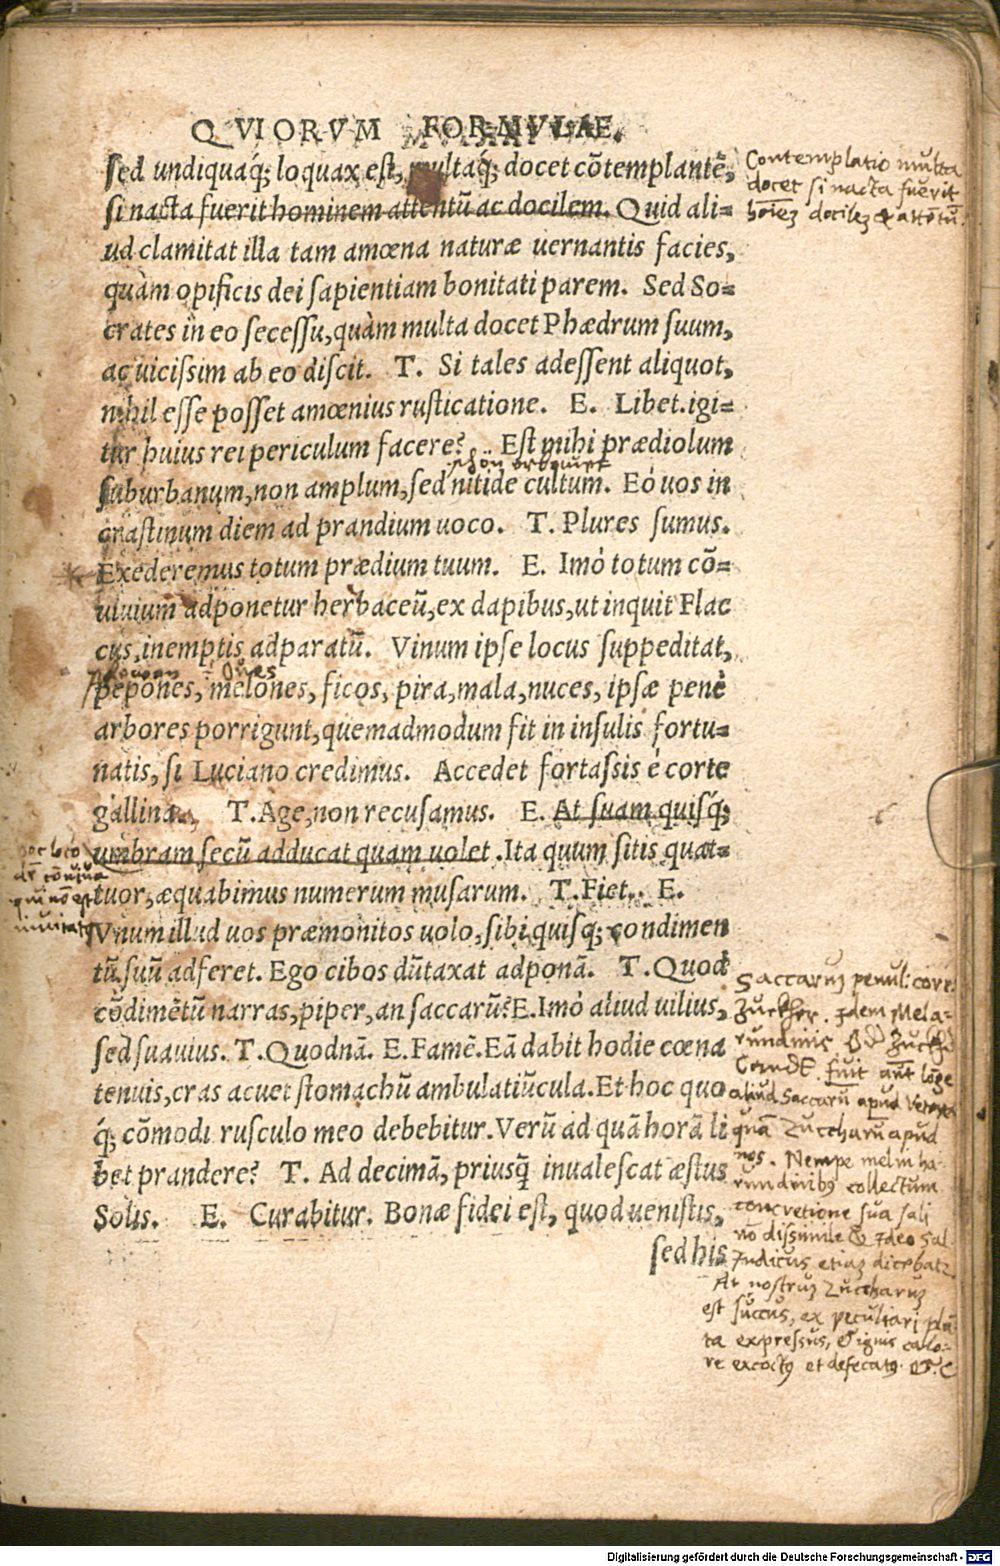 QVIORVM FORMVLAE.
sed undiquaq́; loquax est, multaq́; docet cõtemplantẽ,
si nacta fuerit hominem attentũ ac docilem. Quid ali=
ud clamitat illa tam amœna naturæ uernantis facies,
quàm opificis dei sapientiam bonitati parem. Sed So=
crates in eo secessu, quàm multa docet Phædrum suum,
ac uicissim ab eo discit. T. Si tales adessent aliquot,
nihil esse posset amœnius rusticatione. E. Libet. igi=
tur huius rei periculum facere? Est mihi prædiolum
suburbanum, non amplum, sed nitide cultum. Eó uos in
crastinum diem ad prandium uoco. T. Plures sumus.
Exederemus totum prædium tuum. E. Imó totum cõ=
uiuium adponetur herbaceũ, ex dapibus, ut inquit Flac
cus, inemptis adparatũ. Vinum ipse locus suppeditat,
pepones, melones, ficos, pira, mala, nuces, ipsæ penè
arbores porrigunt, quemadmodum fit in insulis fortu=
natis, si Luciano credimus. Accedet fortassis è corte
gallina. T. Age, non recusamus. E. At suam quisq́;
umbram secũ adducat quam uolet. Ita quum sitis quat-
tuor, æquabimus numerum musarum. T. Fiet. E.
Vnum illud uos præmonitos uolo, sibi quisq; condimen
tũ suũ adferet. Ego cibos dũtaxat adponã. T. Quod
cõdimẽtũ narras, piper, an saccarũ? E. Imó aliud uilius,
sed suauius. T. Quodnã. E. Famẽ. Eã dabit hodie cœna
tenuis, cras acuet stomachũ ambulatiũcula. Et hoc quo
q́; cõmodi rusculo meo debebitur. Verũ ad quã horã li
bet prandere? T. Ad decimã, priusq̃ inualescat æstus
Solis. E. Curabitur. Bonæ fidei est, quod uenistis,
sed his
Contemplatio multa
docet si nacta fuerit
hoiez docilez & attẽtũ.
Saccarũ penul: corr:
Zucker. Idem Mela-
rundinis
fuit aũt lõge
aliud Saccarũ apud Veteres
quã Zuccharũ apud
nos. Nempe mel in ha-
rundinibꝰ collectum
concretione sua sali
nõ dissimile & Ideo Sal
Indicus etiaz dicebatr
At nostruz Zuccharuz
est succus, ex peculiari plã
ta expressus, & ignis calo-
re excoctꝰ et defecatꝰ
hoc loco
dr̃ cõuiua
qui nõ est
inuitatꝰ